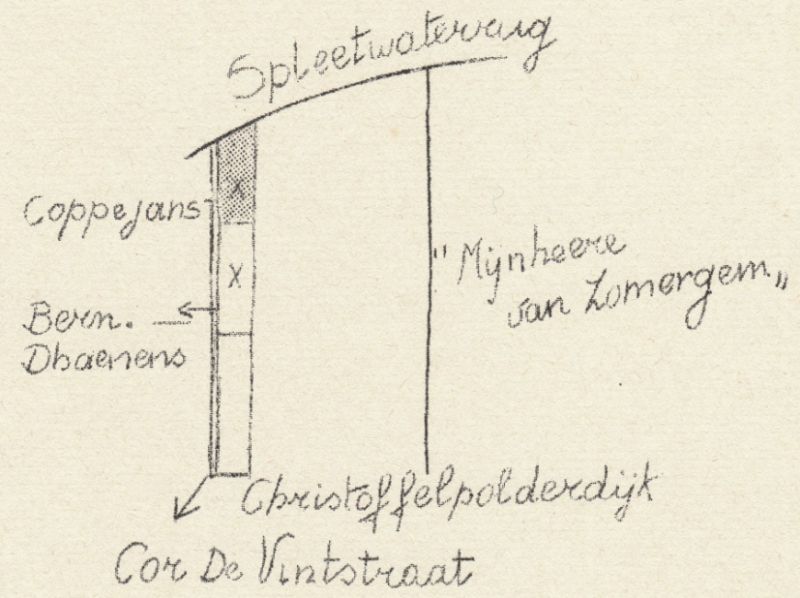 Spleetwaterweg
Coppejans
X
X
"Mijnheere
van Zomergem„
Bern.
Dhaenens
Christoffelpolderdijk
Cor De Vintstraat